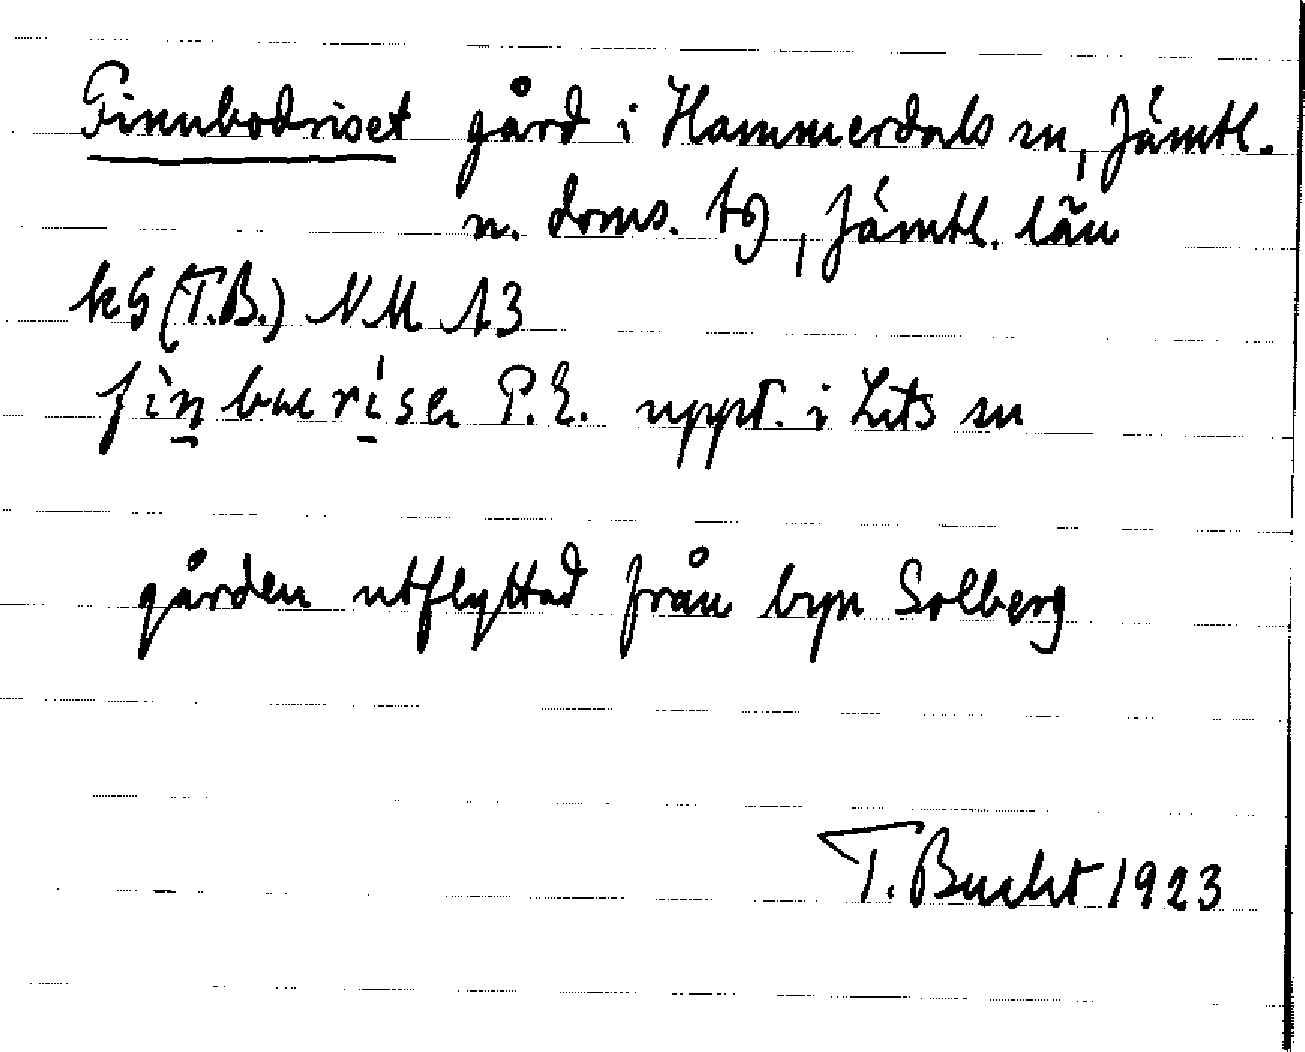 Finnbodriset gård i Hammerdals sn, Jämtl.
n. doms. tg, Jämtl. län
kG (T.B.) NM. 13
fìn bɯ rìsɛ P.E. uppt. i Lits sn
gården utflyttad från byn Solberg
T. Bucht 1923